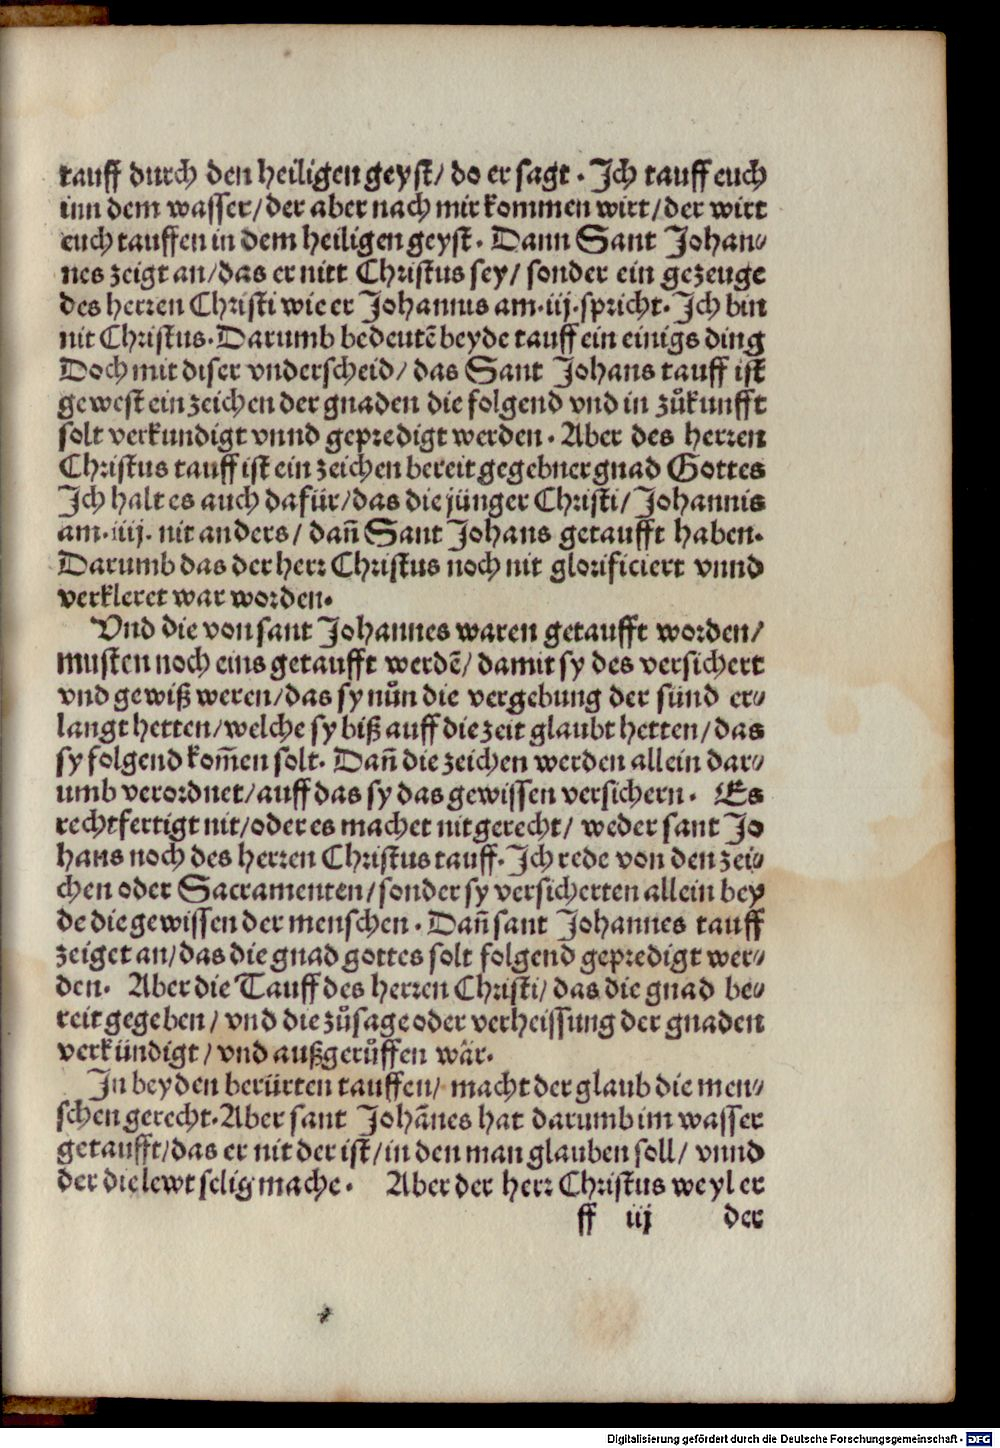 tauff durch den heiligen geyst/ do er sagt . Ich tauff euch
inn dem wasser/ der aber nach mir kommen wirt/ der wirt
euch tauffen in dem heiligen geyst. Dann Sant Johan⸗
nes zeigt an/ das er nitt Christus sey/ sonder ein gezeuge
des herren Christi wie er Johannis am .iij. spricht. Ich bin
nit Christus. Darumb bedeutē beyde tauff ein einigs ding
Doch mit diser vnderscheid/ das Sant Johans tauff ist
gewest ein zeichen der gnaden die folgend vnd in zůkunfft
solt verkundigt vnnd gepredigt werden . Aber des herren
Christus tauff ist ein zeichen bereit gegebner gnad Gottes
Ich halt es auch dafür/ das die jünger Christi/ Johannis
am .iiij. nit anders/ dañ Sant Johans getaufft haben.
Darumb das der herr Christus noch nit glorificiert vnnd
verkleret war worden.
Vnd die von sant Johannes waren getaufft worden/
musten noch eins getaufft werdē/ damit sy des versichert
vnd gewiß weren/ das sy nůn die vergebung der sünd er⸗
langt hetten/ welche sy biß auff die zeit glaubt hetten/ das
sy folgend kom̄en solt. Dañ die zeichen werden allein dar⸗
umb verordnet/ auff das sy das gewissen versichern. Es
rechtfertigt nit/ oder es machet nit gerecht/ weder sant Jo
hans noch des herren Christus tauff. Ich rede von den zei⸗
chen oder Sacramenten/ sonder sy versicherten allein bey
de die gewissen der menschen . Dañ sant Johannes tauff
zeiget an/ das die gnad gottes solt folgend gepredigt wer⸗
den. Aber die Tauff des herren Christi/ das die gnad be⸗
reit gegeben/ vnd die zůsage oder verheissung der gnaden
verkündigt/ vnd außgerůffen wär.
In beyden berürten tauffen/ macht der glaub die men⸗
schen gerecht. Aber sant Johān̄es hat darumb im wasser
getaufft/ das er nit der ist/ in den man glauben soll/ vnnd
der die lewt selig mache. Aber der herr Christus weyl er
ff iij der
Digitalisierung gefördert durch die Deutsche Forschungsgemeinschaft - DFG